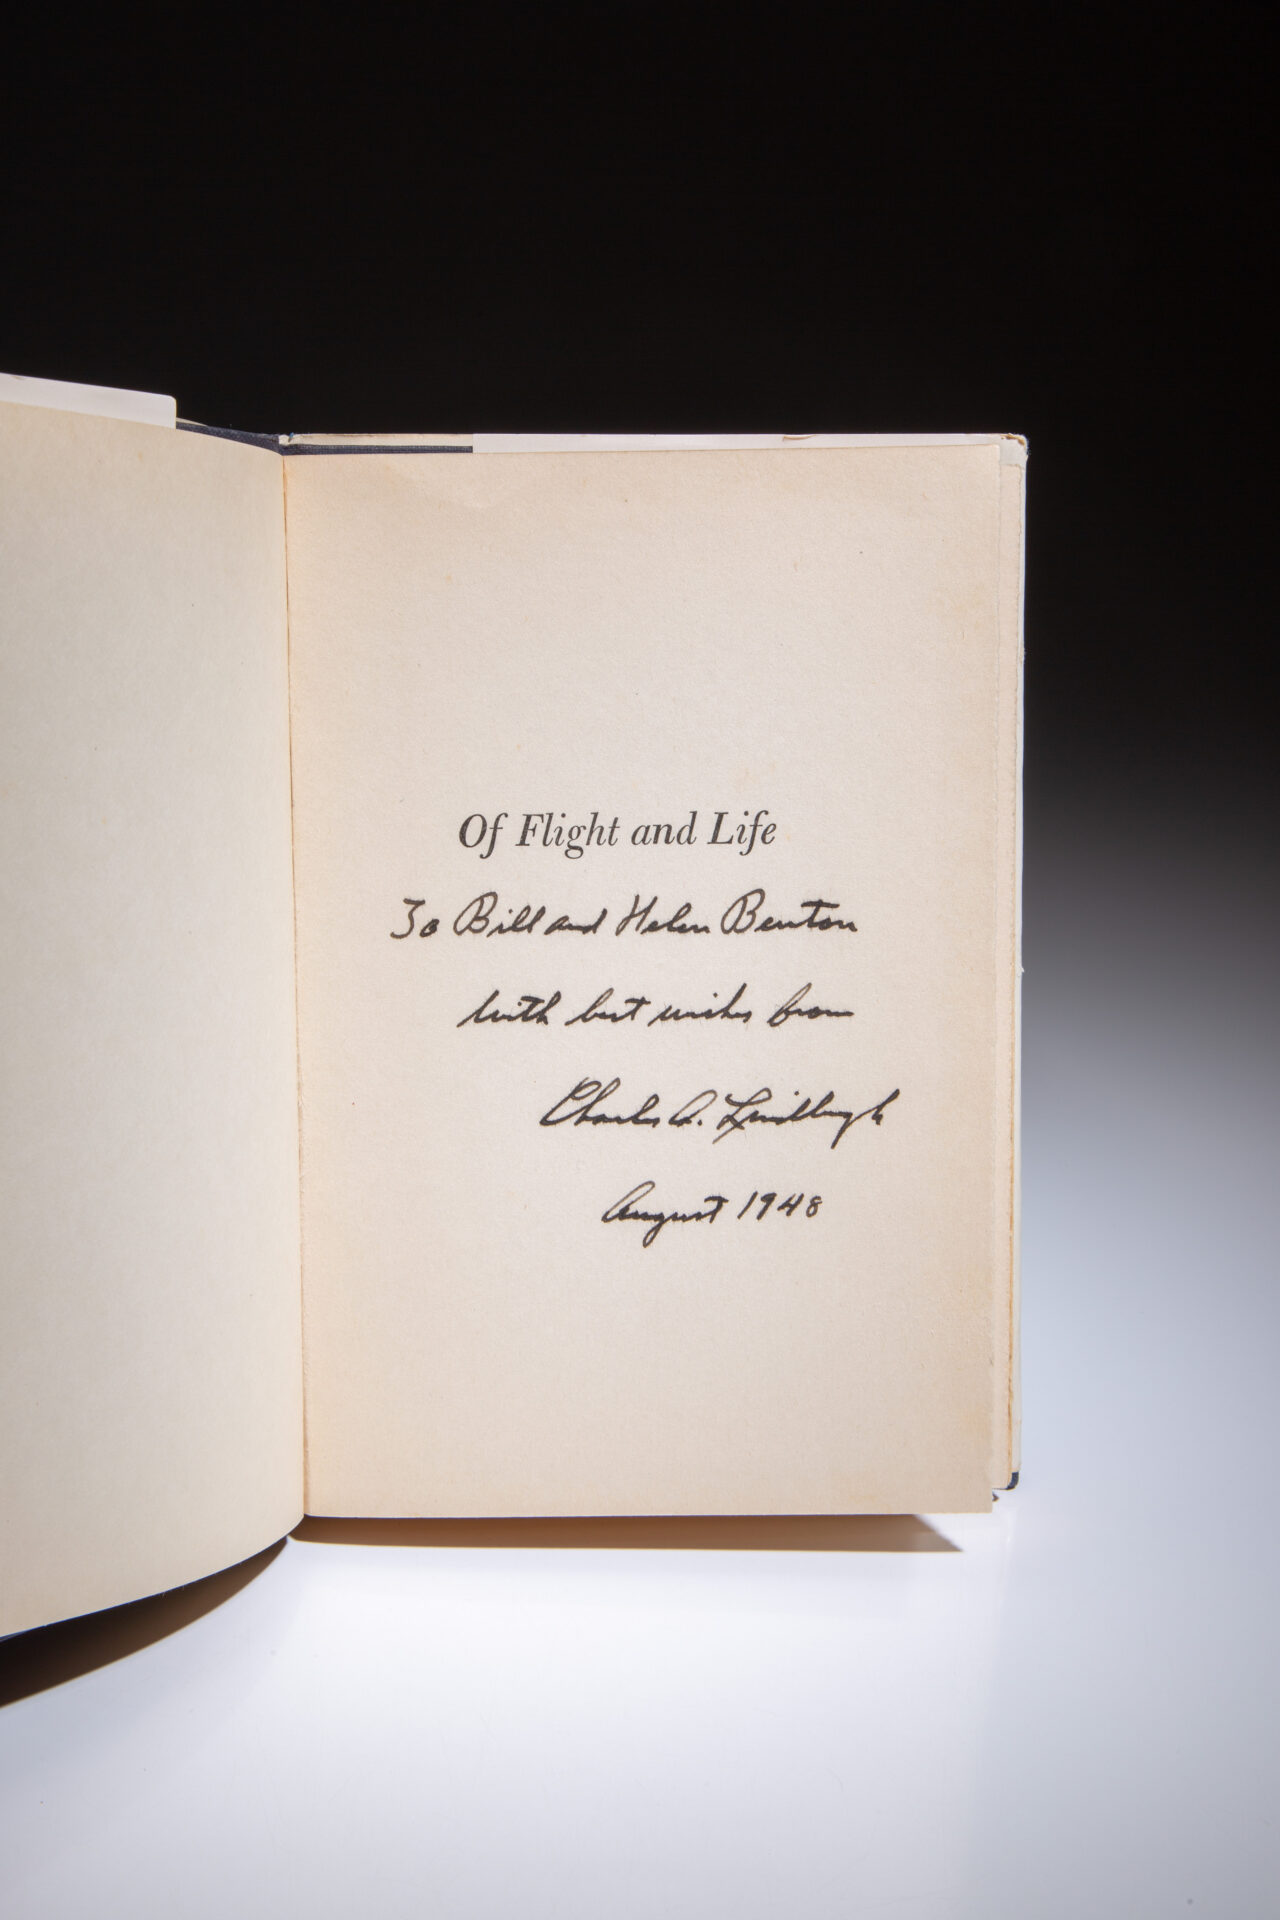 Of Flight and Life
To Bill and Helen Benton
with best wishes from
Charles A. Lindbergh
August 1948